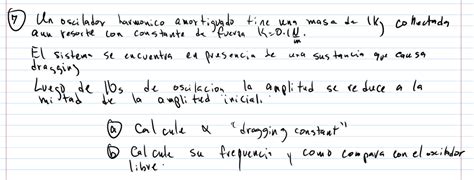 7 Un oscilador harmonico amortiguado tine una masa de 1Kg conectada
a un resorte con constante de fuerza K=0.1 N/m
El sistema se encuentra en presencia de una sustancia que causa
dragging
Luego de 10s de oscilacion la amplitud se reduce a la
mitad de la amplitud inicial.
a Calcule α "dragging constant"
b Calcule su frequencia y como compara con el oscilador
libre.